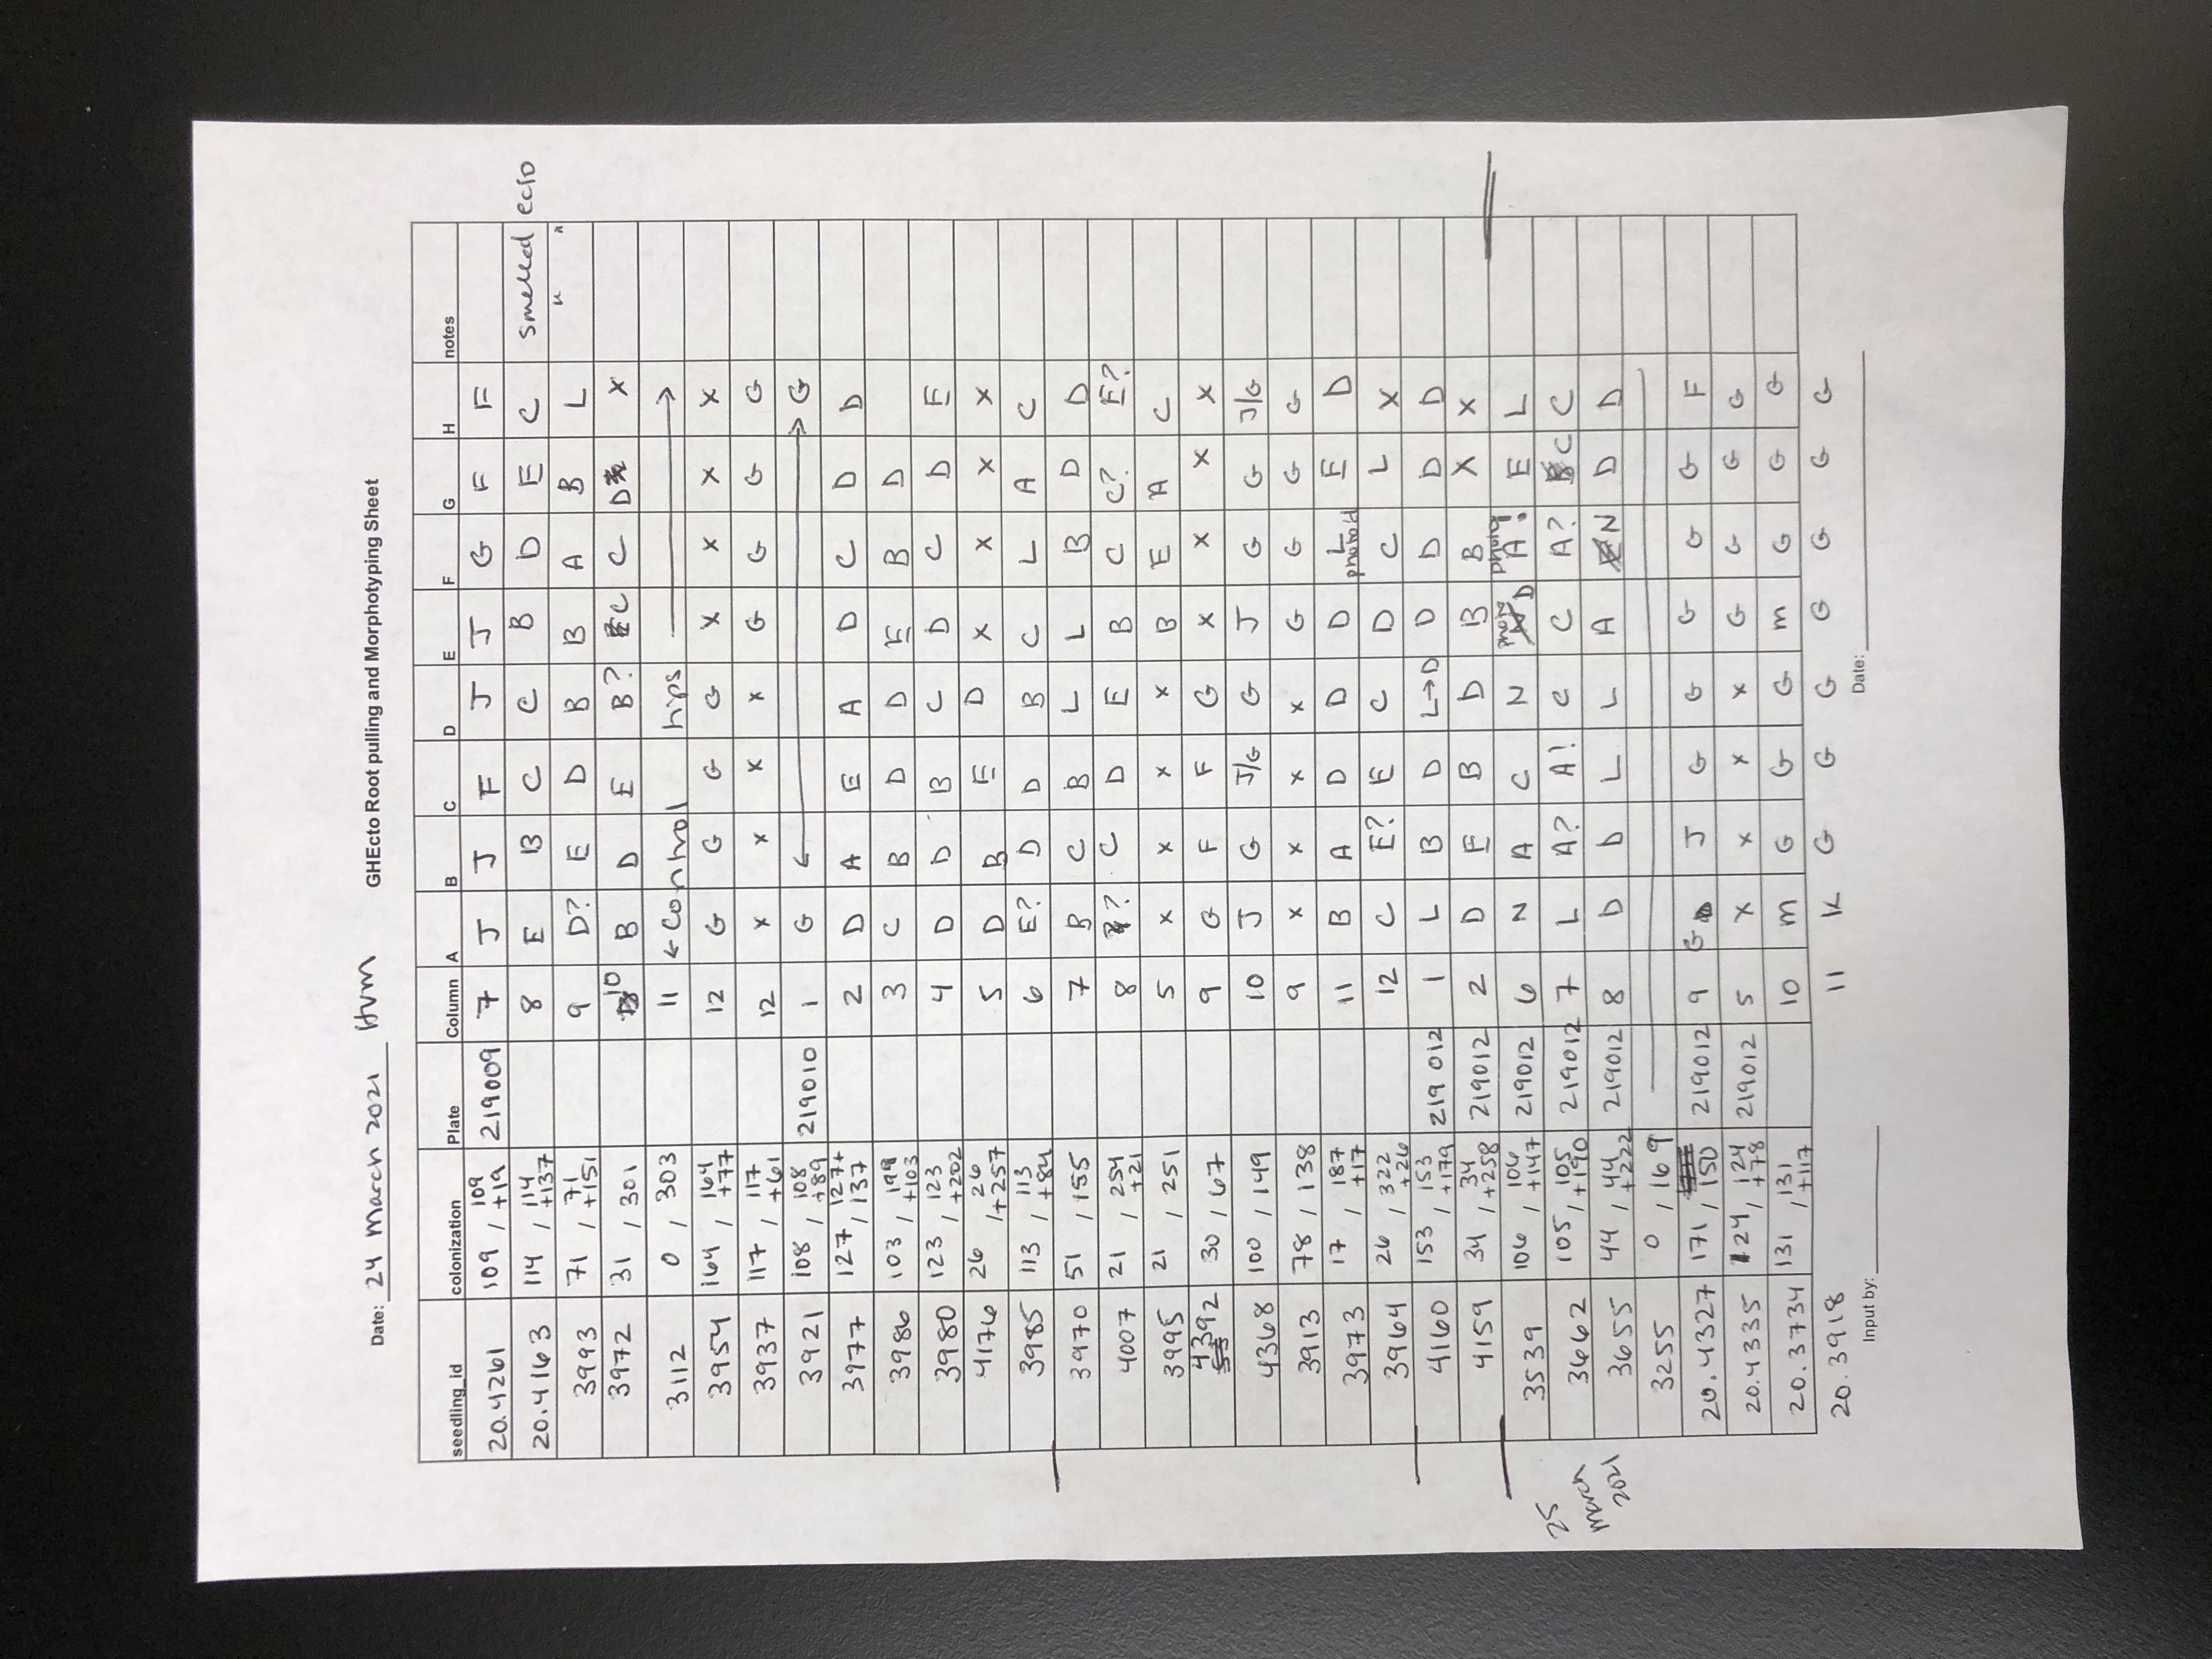 Date: 24 March 2021 HVM GHEcto Root pulling and Morphotyping Sheet
seedling_id colonization Plate Column A B C D E F G H notes
20.4261 109 / 109 +19 219009 7 J J F J J G F F
20.4163 114 / 114 +137 8 E B C C B D E C smelled ecto
3993 71 / 71 +151 9 D? E D B B A B L " "
3972 31 / 301 10 B D E B? C C D X
3112 0 / 303 11 ← control tips →
3954 164 / 164 +77 12 G G G G X X X X
3937 117 / 117 +61 12 X X X X G G G G
3921 108 / 108 +89 219010 1 G ←→ G
3977 127 / 127+ 137 2 D A E A D C D D
3986 103 / 199 +103 3 C B D D E B D
3980 123 / 123 +202 4 D D B C D C D E
4176 26 / 26 +257 5 D B E D X X X X
3985 113 / 113 +84 6 E? D D B C L A C
3970 51 / 155 7 B C B L L B D D
4007 21 / 254 +21 8 ? C D E B C C? E?
3995 21 / 251 5 X X X X B E A C
4392 30 / 67 9 G F F G X X X X
4368 100 / 149 10 J G J/G G J G G J/G
3913 78 / 138 9 X X X X G G G G
3973 17 / 187 +17 11 B A D D D L photo'd E D
3964 26 / 322 +26 12 C E? E C D C L X
4160 153 / 153 +179 219012 1 L B D L→D D D D D
4159 34 / 34 +258 219012 2 D E B D B B X X
25 March 2021
3539 106 / 106 +147 219012 6 N A C N photo D photo A! E L
3662 105 / 105 +190 219012 7 L A? A! C C A? C C
3655 44 / 44 +222 219012 8 D D L L A N D D
3255 0 / 169
20.4327 171 / 150 219012 9 G J G G G G G F
20.4335 124 / 124 +78 219012 5 X X X X G G G G
20.3734 131 / 131 +117 10 M G G G M G G G
20.3918 11 K G G G G G G G
Input by: Date: